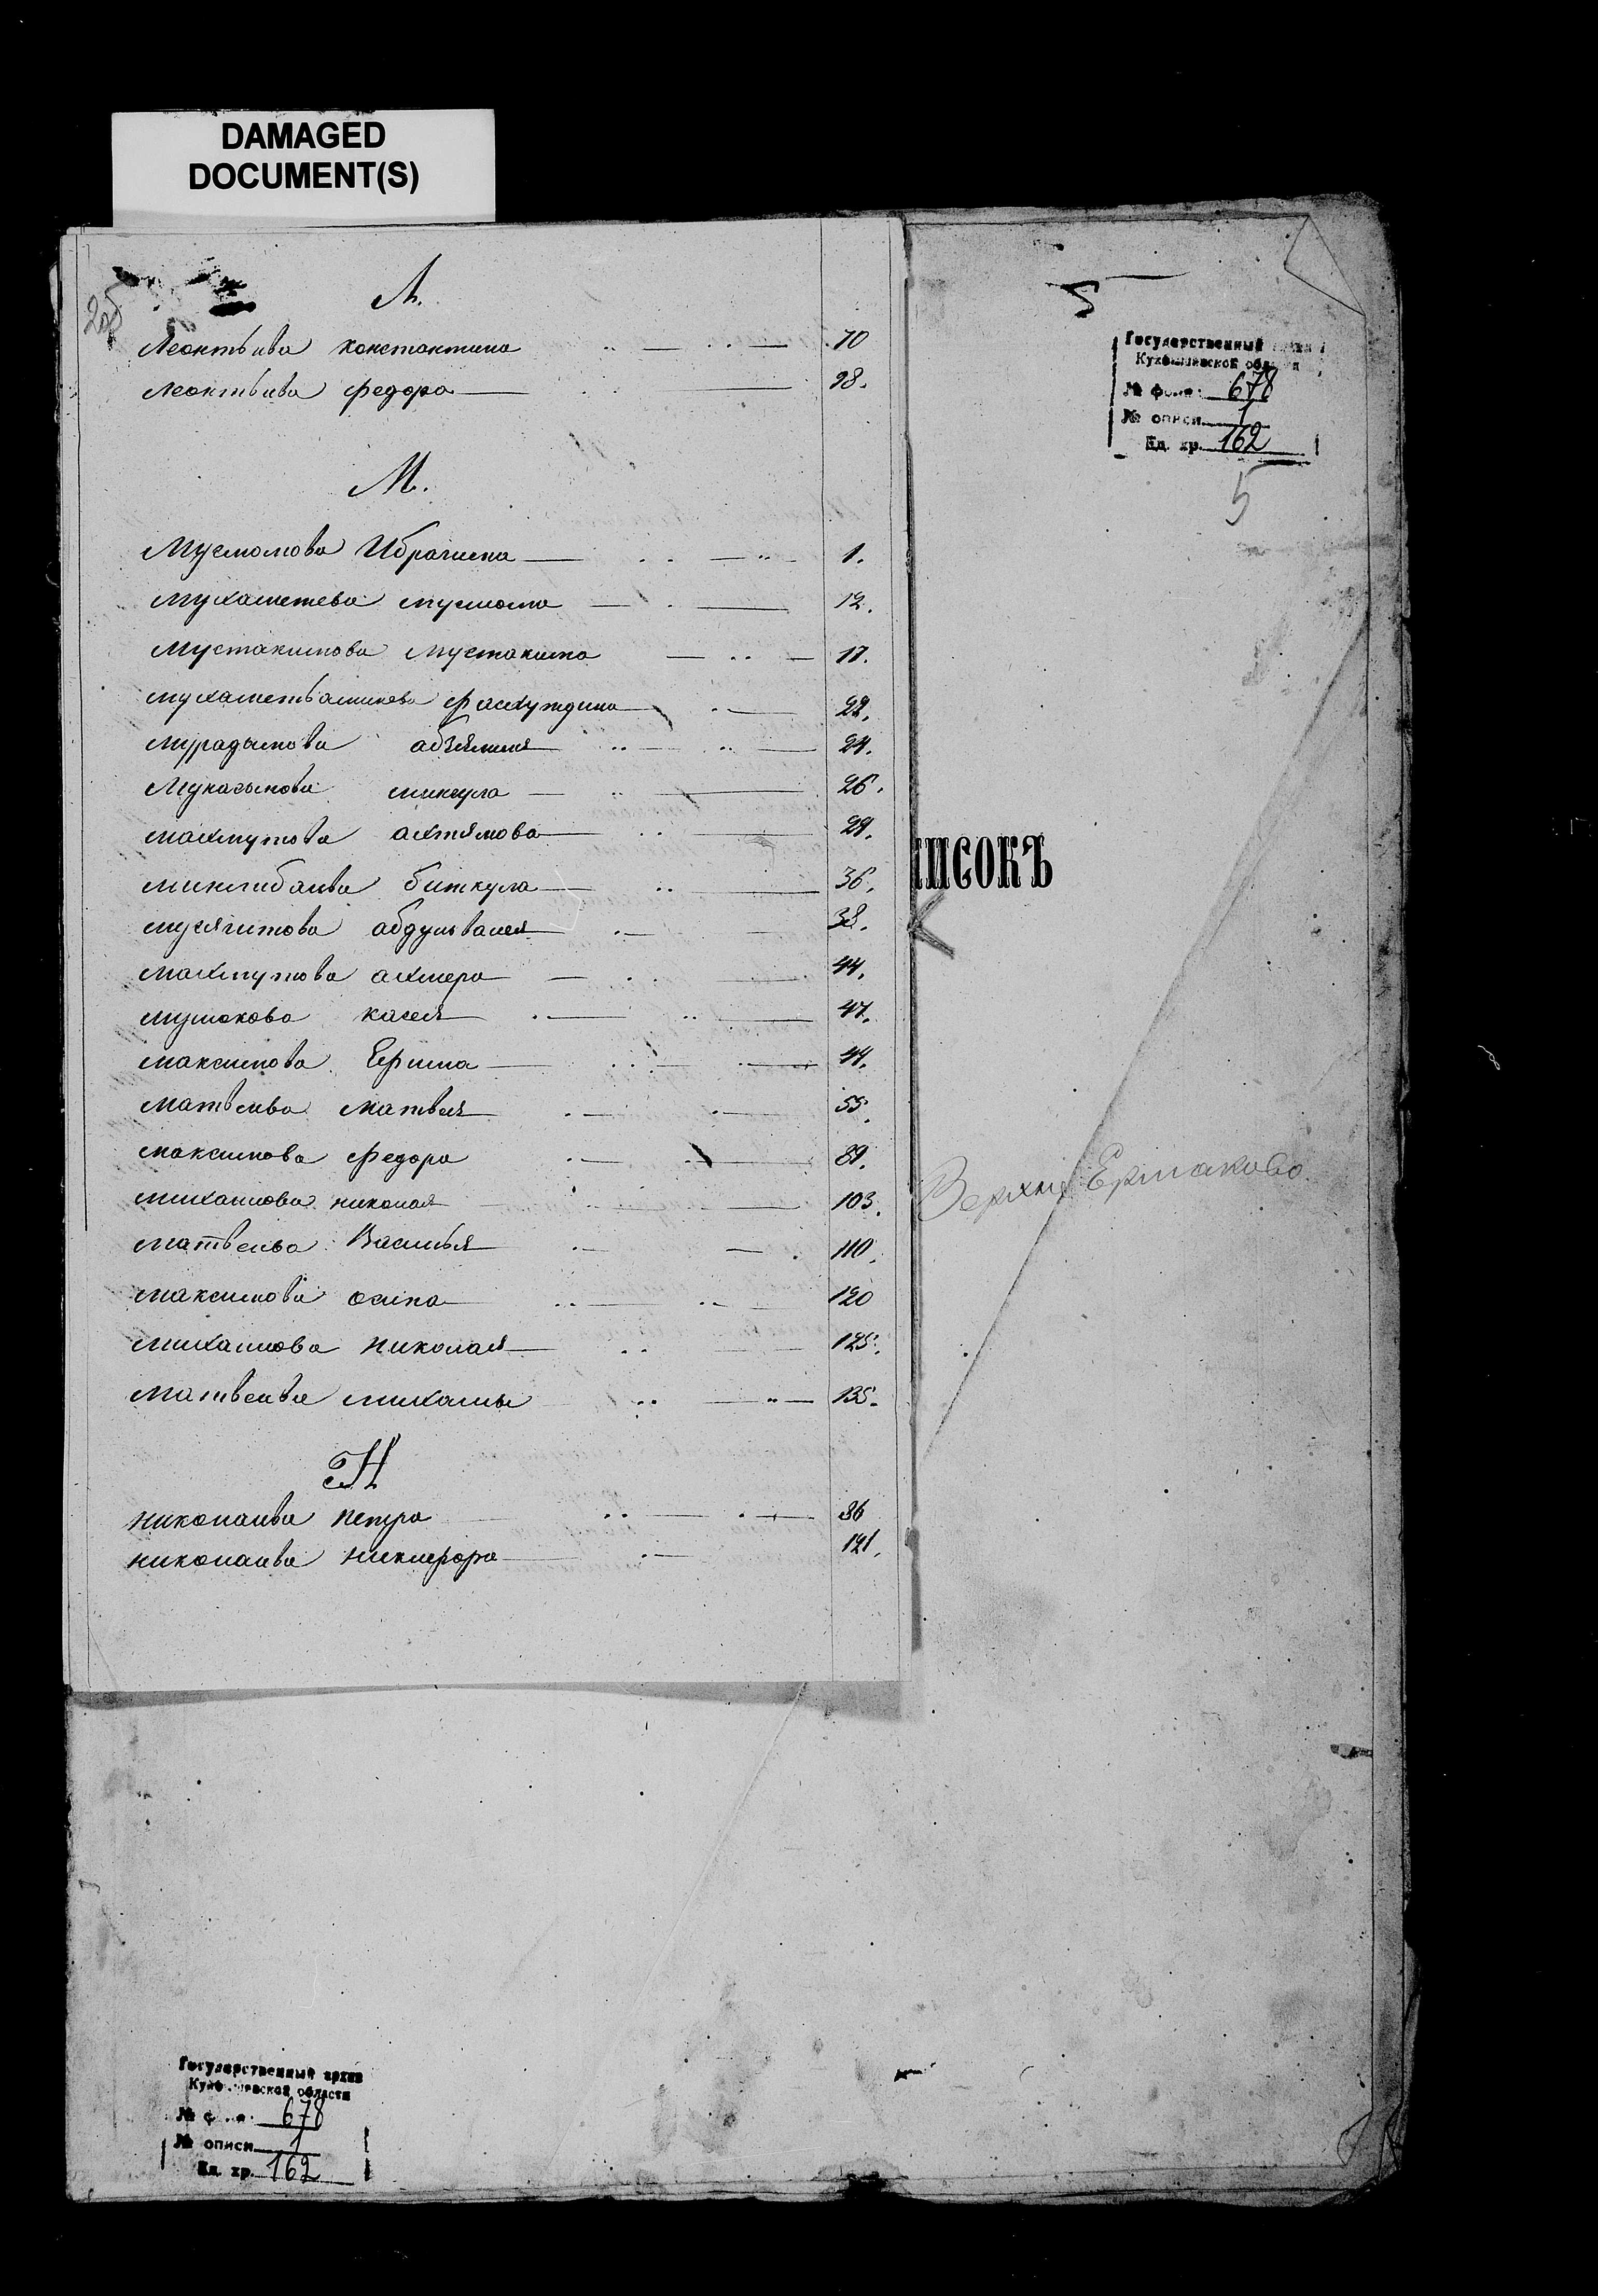 DAMAGED
DOCUMENT(S)
2об
Л.
Леонтьива Константина 70
Леонтьива Федора 98.
М.
Мусмомова Ибрагима 1.
Мухаметева 12.
Мустакимова Мустакима 17.
Мухаметьашикова Фасхутдина 22.
Мурадымова абзялиля 24.
Мукасымова 26.
Махмутова ахтямова 29.
Минлибаива биткула 36.
Мусягитова абдулвалея 38.
Махмутова ахмера 44.
Мушакова касея 47.
Максимова Ефима 44.
Матвеива Матвея 55.
Максимова Федора 89.
Михаилова Николая 103.
Матвеива Василья 110.
Максимова осипа 120
Михаилова Николая 125.
Матвеива михаилы 135.
Н
Николаива Петра 86
Николаива Никифора 121.
5
Государственный архив
Куйбышевской области
№ фонда 678
№ описи 1
Ед. хр. 162
5
ПИСОКЪ
Верхне Ермаково
Государственный архив
Куйбышевской области
№ фонда 678
№ описи 1
Ед. хр. 162